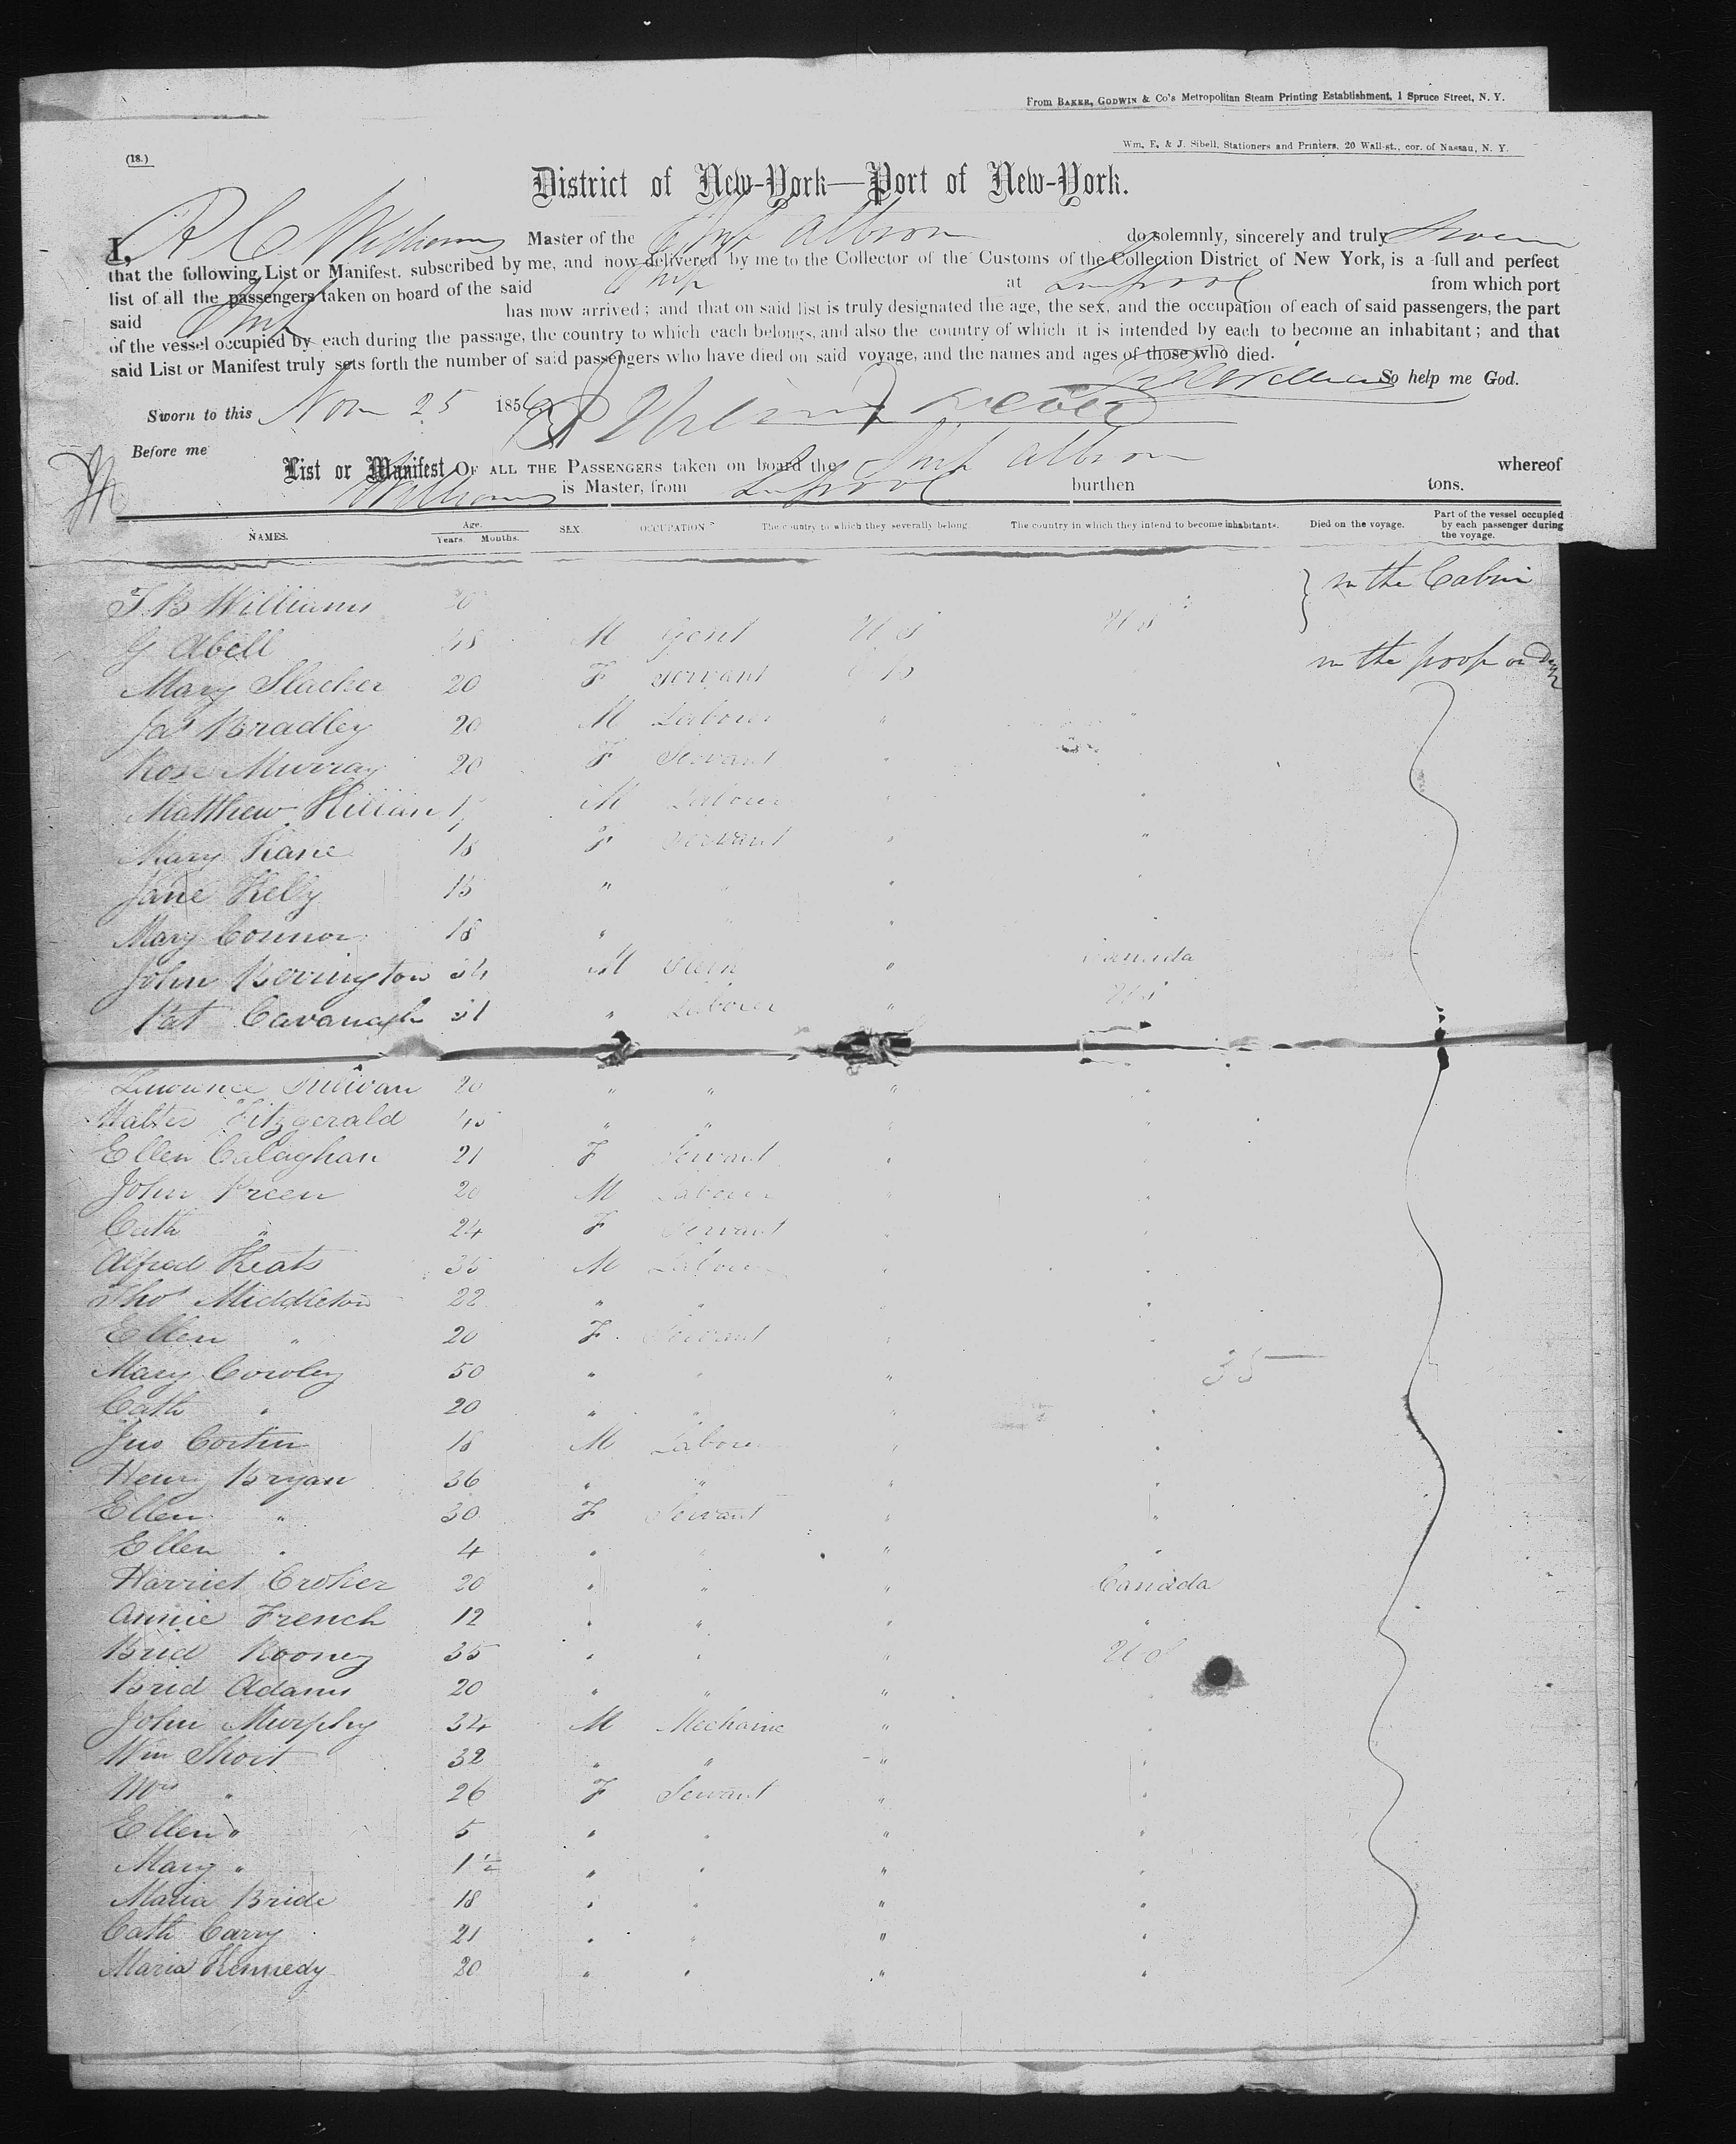 From BAKER, GODWIN & Co's Metropolitan Steam Printing Establishment, 1 Spruce Street, N. Y.
Wm. E. & J. Sibell, Stationers and Printers, 20 Wall-st., cor. of Nassau, N. Y.
(18.)
District of New-York—Port of New-York.
I, Williams Master of the Ship Albion do solemnly, sincerely and truly Swear
that the following List or Manifest. subscribed by me, and now delivered by me to the Collector of the Customs of the Collection District of New York, is a full and perfect
list of all the passengers taken on board of the said Ship at Liverpool from which port
said Ship has now arrived; and that on said list is truly designated the age, the sex, and the occupation of each of said passengers, the part
of the vessel occupied by each during the passage, the country to which each belongs, and also the country of which it is intended by each to become an inhabitant; and that
said List or Manifest truly sets forth the number of said passengers who have died on said voyage, and the names and ages of those who died.
So help me God.
Sworn to this Nov 25 1856
Before me
List or Manifest OF ALL THE PASSENGERS taken on board the Ship Albion whereof
Williams is Master, from Liverpool burthen tons.
NAMES. Age. Years. Months. SEX. OCCUPATION. The country to which they severally belong. The country in which they intend to become inhabitants. Died on the voyage. Part of the vessel occupied by each passenger during the voyage.
T B Williams } in the Cabin
G Abell 48 M Gent U S U S
Mary Slacker 20 F Servant in the poop on
Jas Bradley 20 M Laborer "
Rose Murray 20 F Servant "
Matthew Killian M Laborer " "
Mary Kane 18 F Servant " "
Jane Kelly 18 " " " "
Mary Connor 18 " " "
John Berrington 34 M " Canada
Pat Cavanagh 31 " Laborer " U S
Lawrence Sullivan 20 " " " "
Walter Fitzgerald " " " "
Ellen Calaghan 21 F Servant " "
John Green 20 M Laborer " "
Cath " 24 F Servant " "
Alfred Keats 35 M Laborer " "
Thos Middleton 22 " " "
Ellen " 20 F Servant " "
Mary Cowley 50 " " " 35
Cath " 20 " " " "
Jno 18 M Laborer " "
Henry Bryan 36 " " " "
Ellen " 30 F Servant " "
Ellen " 4 " " " "
Harriet Croker 20 " " " Canada
Annie French 12 " " " "
Brid Rooney 35 " " " U S
Brid Adams 20 " " " "
John Murphy 34 M Mechanic " "
Wm Short 32 " " " "
Mrs " 26 F Servant " "
Ellen " 5 " " " "
Mary " 1½ " " " "
Maria Bride 18 " " " "
Cath Carry 21 " " " "
Maria Kennedy 20 " " " "